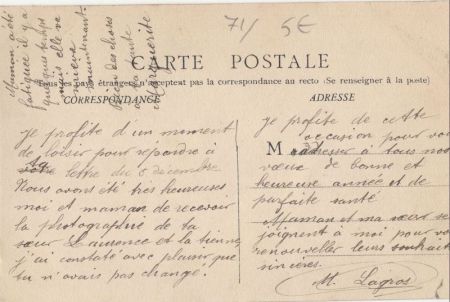 71/ 5€
Maman a été
fatiguée il y a
quelques temps
mais elle va
mieux
maintenant.
bien des choses
à la
Marguerite
CARTE POSTALE
pays étrangers n'acceptent pas la correspondance au recto (Se renseigner à la poste)
CORRESPONDANCE
Je profite d'un moment
de loisir pour répondre à
ta lettre du 8 décembre
Nous avons été très heureuses
moi et maman de recevoir
la photographie de ta
sœur Laurence et la tienne
j'ai constaté avec plaisir que
tu n'avais pas changé.
ADRESSE
je profite de cette
occasion pour vous
M adresser à tous nos
vœux de bonne et
heureuse année et de
parfaite santé
Maman et ma sœur se
joignent à moi pour vous
renouveller leurs souhaits
sincères.
M. Lagros